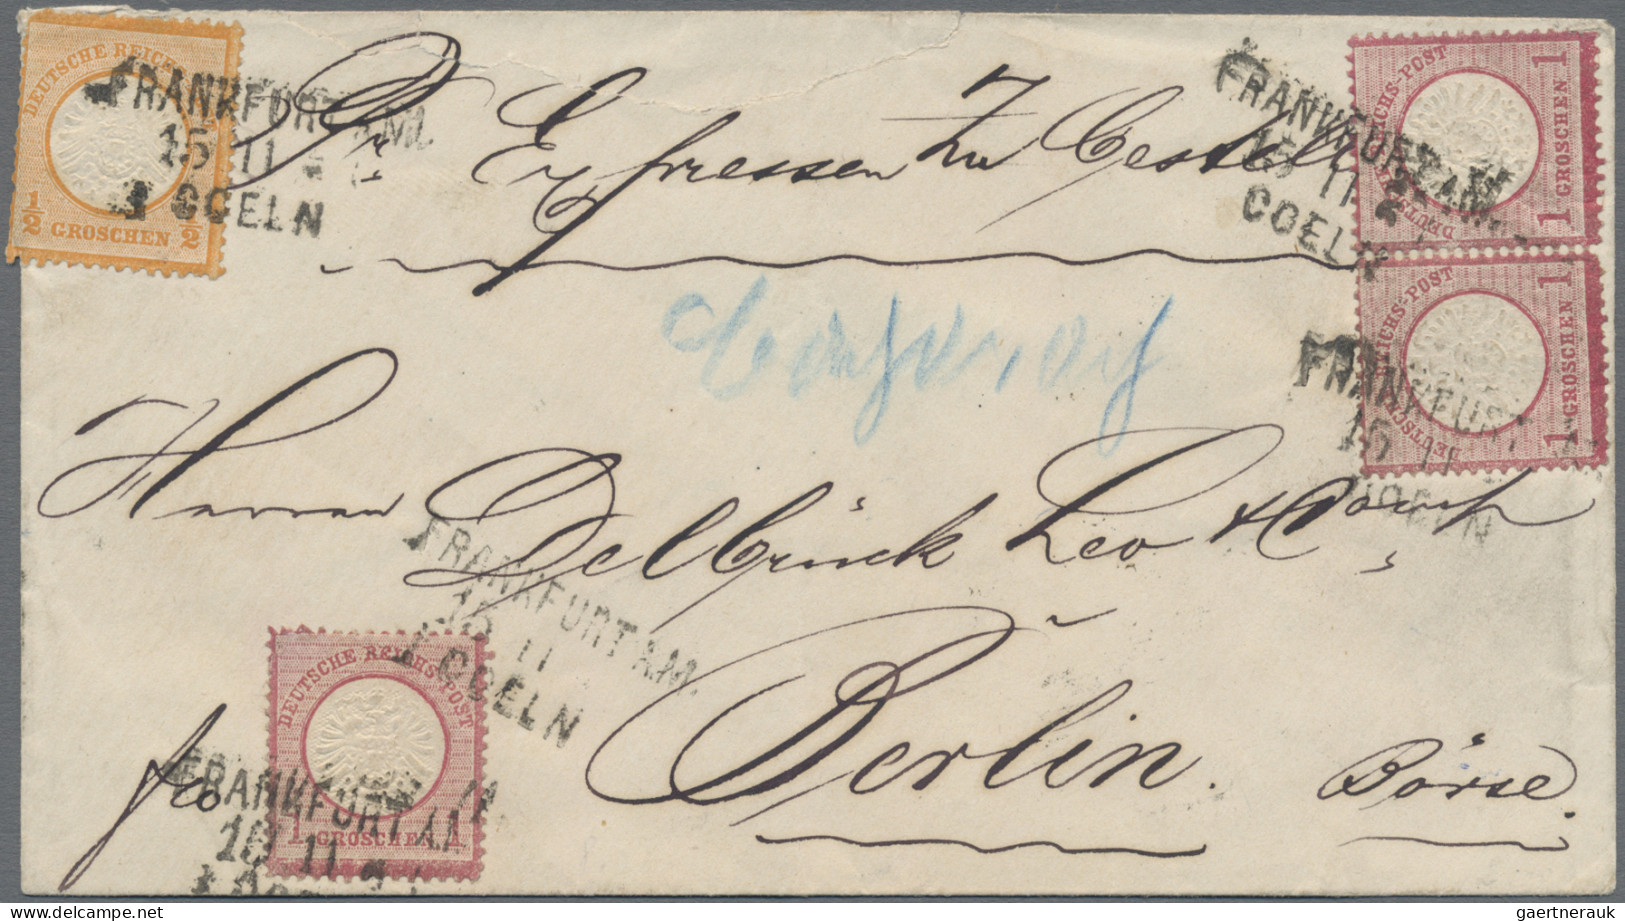 DEUTSCHE REICHS-POST
½ GROSCHEN ½
FRANKFURT A.M.
15 11
COELN
Pr. Expressen zu Bestell
FRANKFURT A.M.
15 11
COELN
DEUTSCHE REICHS-POST
1 GROSCHEN 1
DEUTSCHE REICHS-POST
1 GROSCHEN 1
FRANKFURT A
15 11
COELN
Herren Delbrück Leo & Co
FRANKFURT A.M.
15 11
COELN
Berlin.
Börse.
fco
DEUTSCHE REICHS-POST
1 GROSCHEN 1
FRANKFURT A.M
15 11
gaertnerauk / delcampe.net